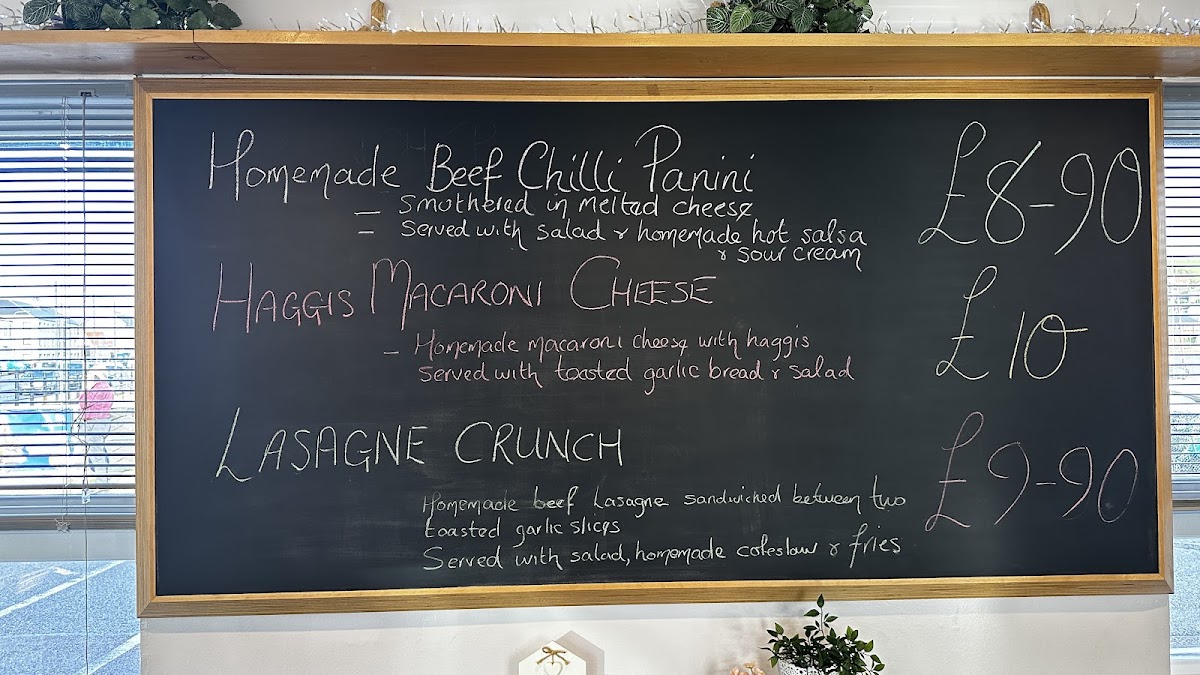 Homemade Beef Chilli Panini £8-90
= Smothered in melted cheese
= Served with salad & homemade hot salsa
& sour cream
HAGGIS MACARONI CHEESE £10
- Homemade macaroni cheese with haggis
Served with toasted garlic bread & salad
LASAGNE CRUNCH £9-90
Homemade beef Lasagne sandwiched between two
toasted garlic slices
Served with salad, homemade coleslaw & fries